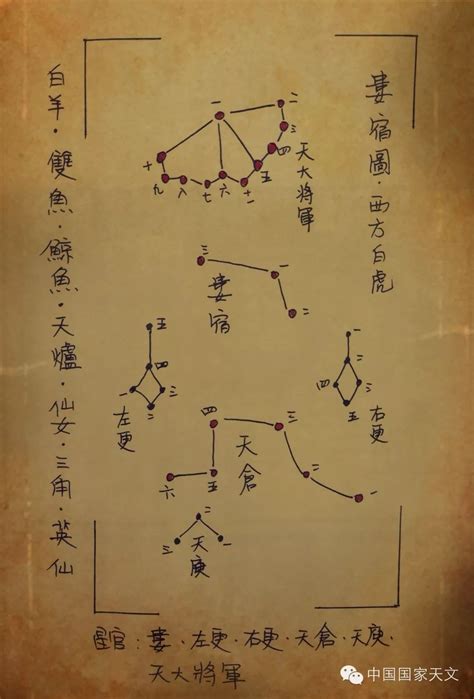 婁宿圖·西方白虎
白羊·雙魚·鯨魚·天爐·仙女·三角·英仙
一
二
三
四
五
十一
六
七
八
九
十
天大將軍
三
一
二
婁宿
五
四
一
三
二
左更
一
二
四
三
五
右更
四
三
二
一
五
六
天倉
二
三
一
天庾
星官：婁·左更·右更·天倉·天庾·
天大將軍
中国国家天文